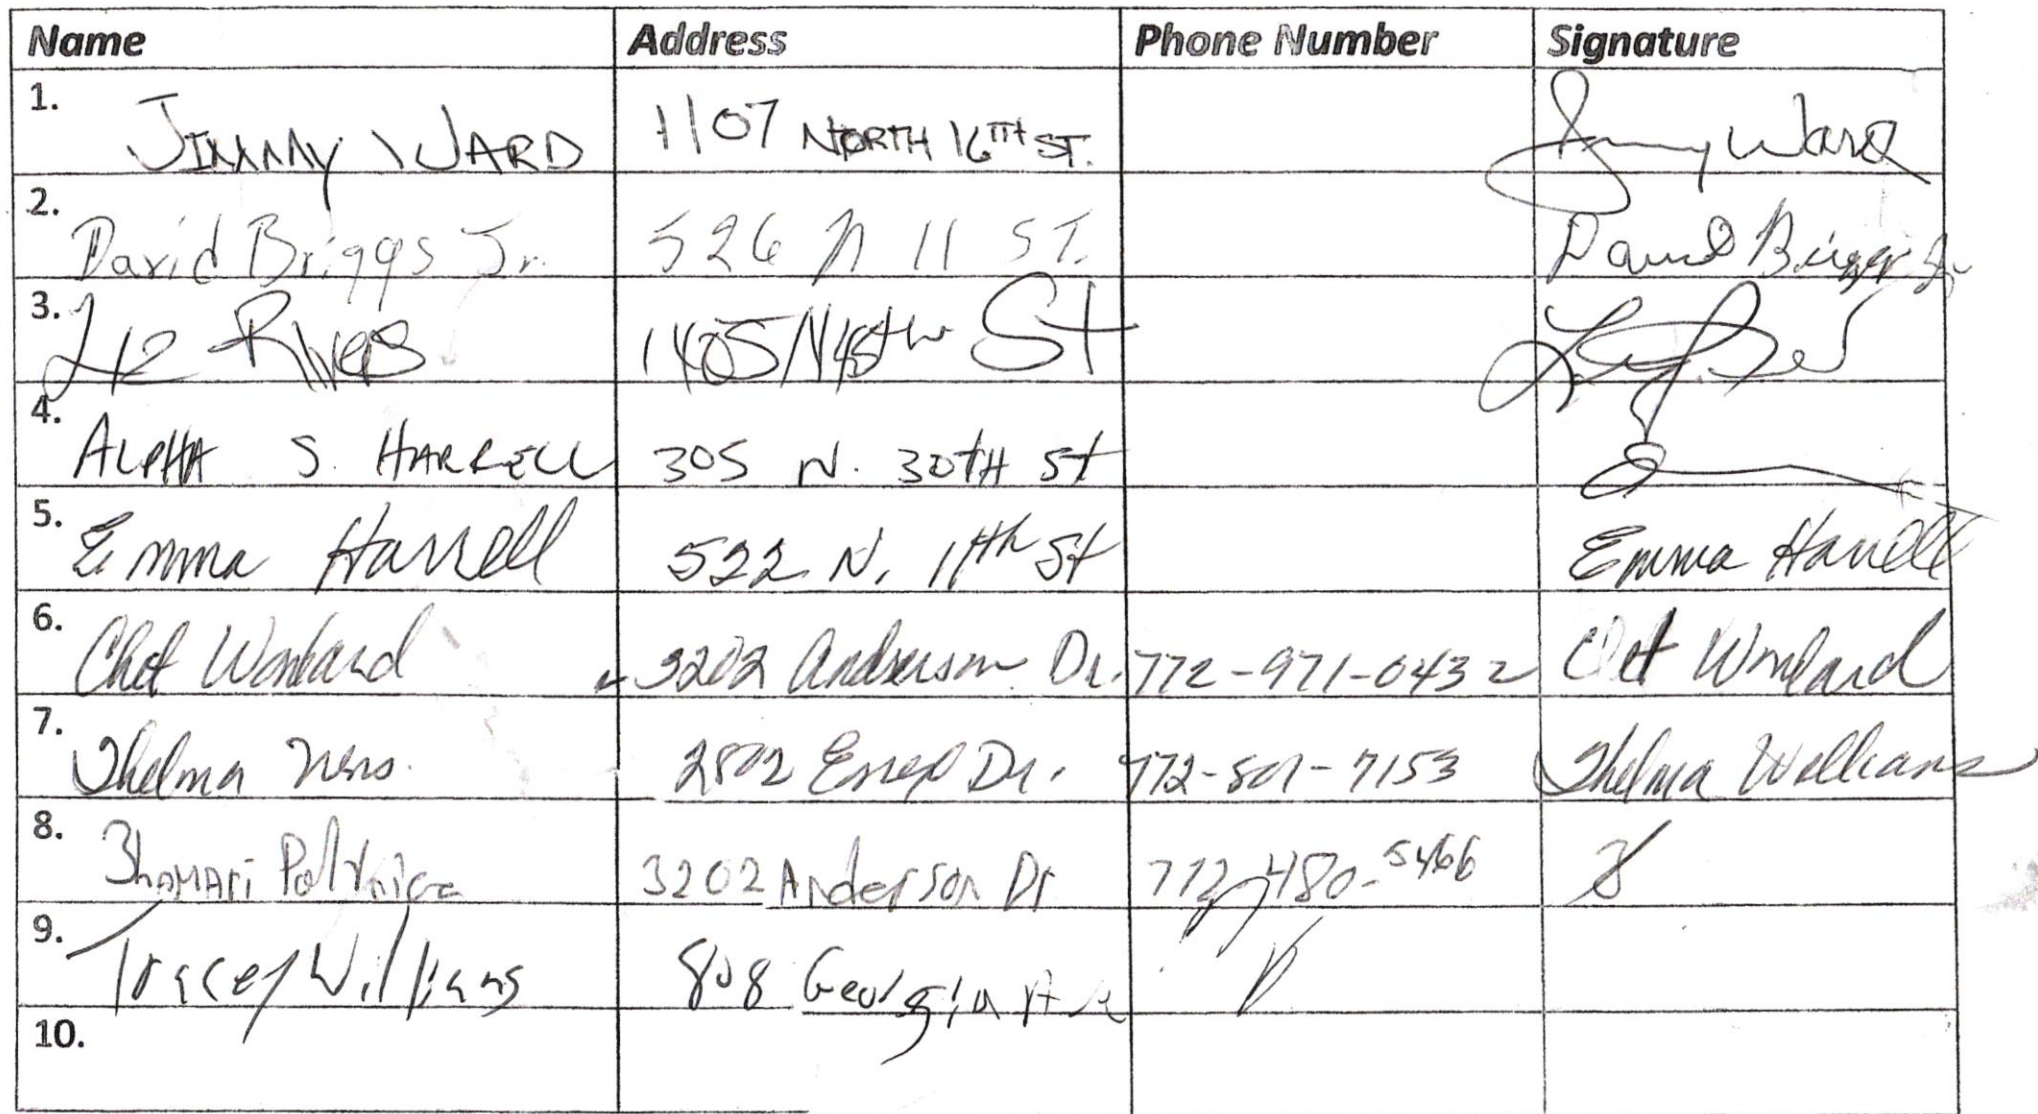 Name Address Phone Number Signature
1. JIMMY WARD 1107 NORTH 16TH ST. Jimmy Ward
2. David Briggs Jr. 526 N 11 ST. David Briggs Jr
3. Liz Rivers 1405 N St
4. ALPHA S. HARRELL 305 N. 30TH St
5. Emma Harrell 522 N. 11th St Emma Harrell
6. Chet 3202 Anderson Dr. 772-971-0432 Chet
7. Thelma Wms. Essex Dr. 7153 Thelma Williams
8. 3202 Anderson Dr 772-480-5466
9. Tracey Williams 808 Georgia Ave
10.